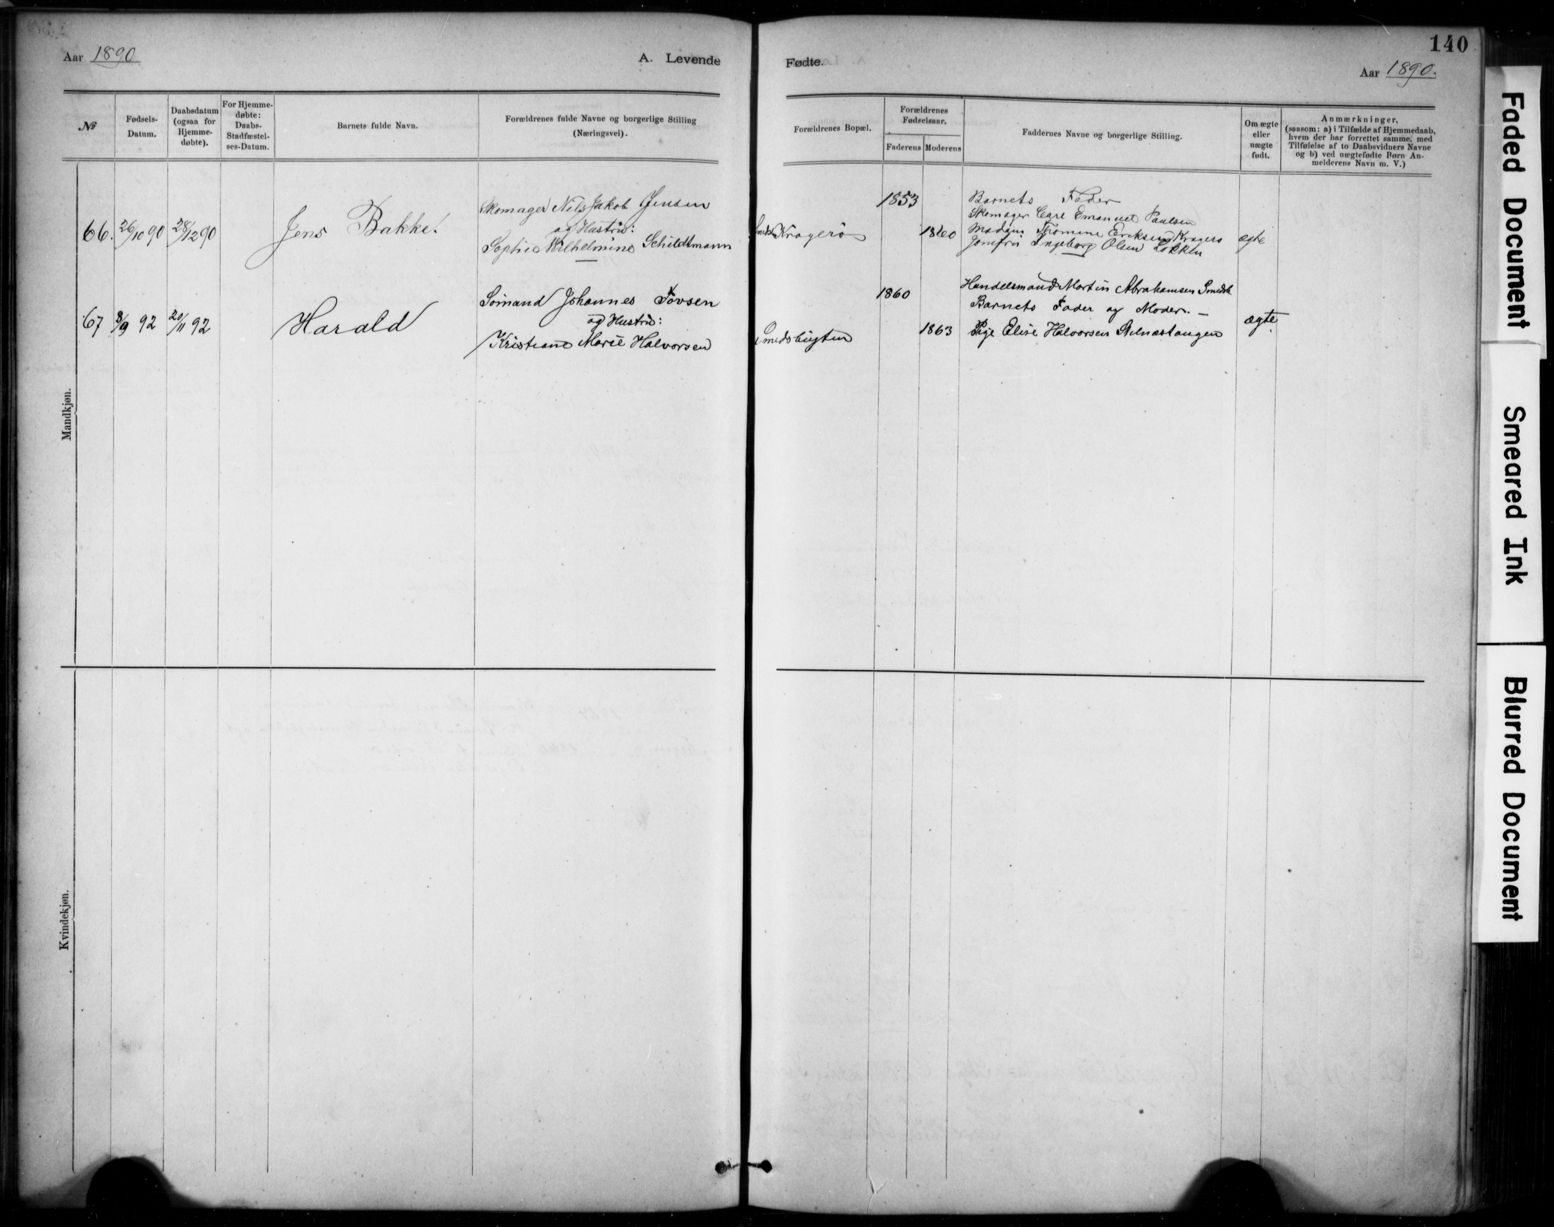 Aar 1890
A. Levende
Fødte.
Aar 1890.
140
№
Fødsels-
Datum.
Daabsdatum
(ogsaa for
Hjemme-
døbte).
For Hjemme-
døbte:
Daabs-
Stadfæstel-
ses-Datum.
Barnets fulde Navn.
Forældrenes fulde Navne og borgerlige Stilling
(Næringsvei).
Forældrenes Bopæl.
Forældrenes
Fødselsaar.
Faderens
Moderens
Faddernes Navne og borgerlige Stilling.
Om ægte
eller
uægte
født.
Anmærkninger,
(saasom: a) i Tilfælde af Hjemmedaab,
hvem der har forrettet samme, med
Tilføielse af to Daabsvidners Navne
og b) ved uægtefødte Børn An-
melderens Navn m. V.)
Mandkjøn.
66. 26/10 90 28/12 90 Jens Bakke.
Skomager Nils Jakob Jensen
og Hustru:
Sophie Wilhelmine Schildtmann
Kragerø
1853
1860
Barnets Fader
Skomager Carl Emanuel Paulsen
Madam Tomine Eriksen Kragerø
Jomfru Ingeborg Olsen Løkken
ægte
67 8/9 92 20/11 92 Harald
Sømand Johannes Tovsen
og Hustru:
Kristiane Marie Halvorsen
Smedsbugten
1860
1863
Handelsmand Martin Abrahamsen Smedsb
Barnets Fader og Moder. —
Pige Elise Halvorsen Stilnestangen
ægte.
Kvindekjøn.
Faded Document
Smeared Ink
Blurred Document